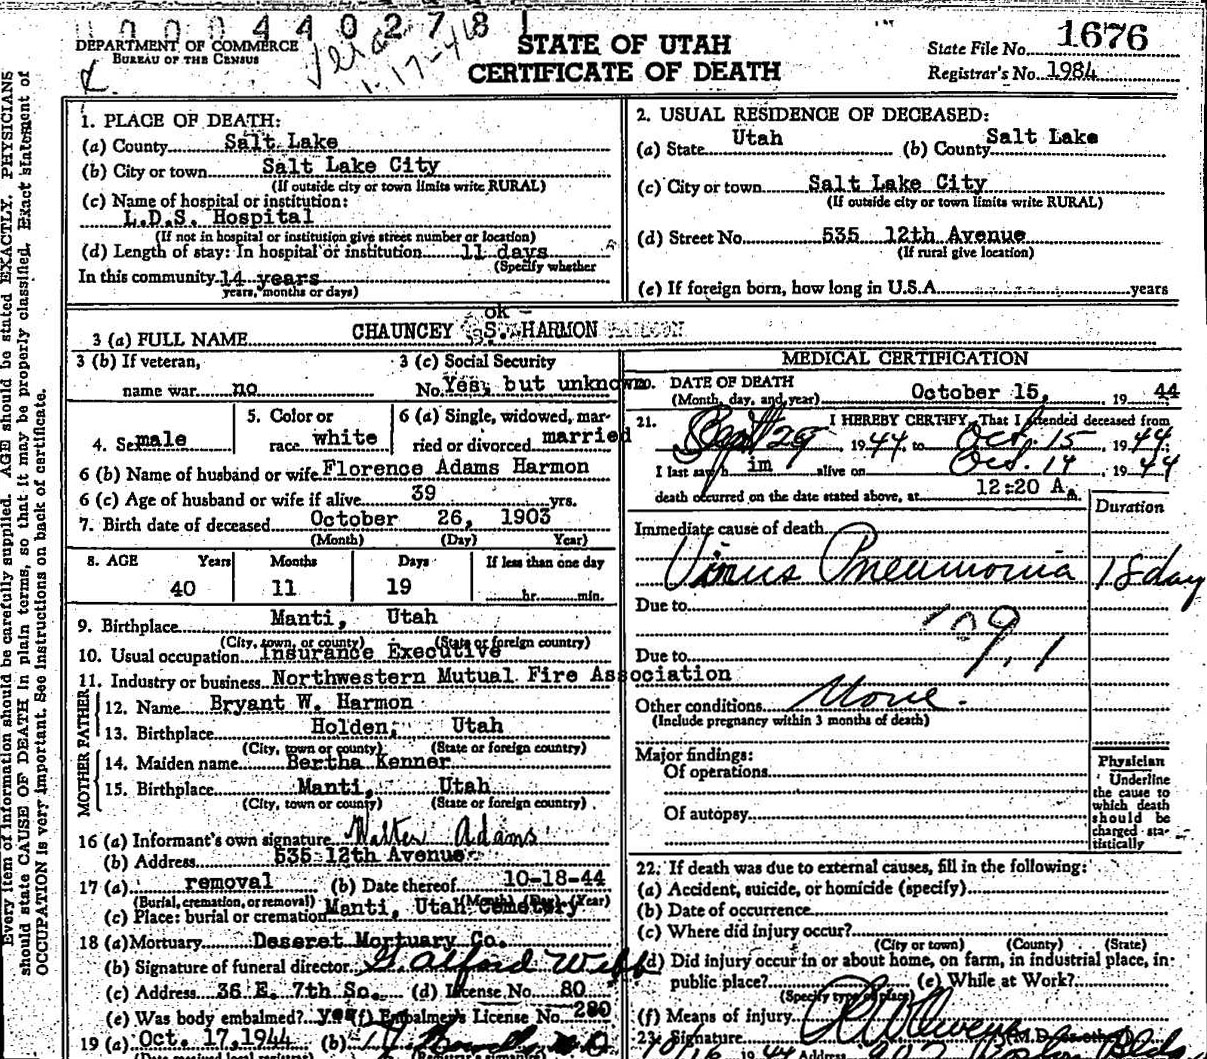 0 0 0 4 4 0 2 7 8 1
DEPARTMENT OF COMMERCE
BUREAU OF THE CENSUS
1-17-46
STATE OF UTAH
CERTIFICATE OF DEATH
State File No. 1676
Registrar's No. 1984
Every item of information should be carefully supplied. AGE should be stated EXACTLY. PHYSICIANS
should state CAUSE OF DEATH in plain terms, so that it may be properly classified. Exact statement of
OCCUPATION is very important. See instructions on back of certificate.
1. PLACE OF DEATH:
(a) County Salt Lake
(b) City or town Salt Lake City
(If outside city or town limits write RURAL)
(c) Name of hospital or institution:
L.D.S. Hospital
(If not in hospital or institution give street number or location)
(d) Length of stay: In hospital or institution 11 days
(Specify whether
In this community 14 years
years, months or days)
2. USUAL RESIDENCE OF DECEASED:
(a) State Utah (b) County Salt Lake
(c) City or town Salt Lake City
(If outside city or town limits write RURAL)
(d) Street No. 535 12th Avenue
(If rural give location)
(e) If foreign born, how long in U.S.A. years
OK
3 (a) FULL NAME CHAUNCEY S. HARMON
3 (b) If veteran,
name war no
3 (c) Social Security
No. Yes, but unknown
4. Sex male
5. Color or
race white
6 (a) Single, widowed, mar-
ried or divorced married
6 (b) Name of husband or wife Florence Adams Harmon
6 (c) Age of husband or wife if alive 39 yrs.
7. Birth date of deceased October 26, 1903
(Month) (Day) Year)
8. AGE Years Months Days If less than one day
40 11 19 hr. min.
9. Birthplace Manti, Utah
(City, town, or county) (State or foreign country)
10. Usual occupation Insurance Executive
11. Industry or business Northwestern Mutual Fire Association
FATHER
12. Name Bryant W. Harmon
13. Birthplace Holden, Utah
(City, town or county) (State or foreign country)
MOTHER
14. Maiden name Bertha Kenner
15. Birthplace Manti, Utah
(City, town or county) (State or foreign country)
16 (a) Informant's own signature Walter Adams
(b) Address 535 12th Avenue
17 (a) removal (b) Date thereof 10-18-44
(Burial, cremation, or removal) (Month) (Day) (Year)
(c) Place: burial or cremation Manti, Utah Cemetery
18 (a) Mortuary Deseret Mortuary Co.
(b) Signature of funeral director
(c) Address 36 E. 7th So. (d) License No. 80
(e) Was body embalmed? yes (f) Embalmer's License No. 280
19 (a) Oct. 17, 1944 (b)
(Date received local registrar)
MEDICAL CERTIFICATION
20. DATE OF DEATH
(Month, day, and year) October 15, 19 44
21. I HEREBY CERTIFY, That I attended deceased from
Sept 29 1944 to Oct. 15 1944
I last saw h im alive on Oct. 14 1944
death occurred on the date stated above, at 12:20 A.
Duration
Immediate cause of death
Virus Pneumonia 18 day
Due to
109.1
Due to
Other conditions None.
(Include pregnancy within 3 months of death)
Major findings:
Of operations
Of autopsy
Physician
Underline
the cause to
which death
should be
charged sta-
tistically
22. If death was due to external causes, fill in the following:
(a) Accident, suicide, or homicide (specify)
(b) Date of occurrence
(c) Where did injury occur?
(City or town) (County) (State)
(d) Did injury occur in or about home, on farm, in industrial place, in
public place? (e) While at Work?
(Specify type of place)
(f) Means of injury
23. Signature (M.D. or other)
10/16 1944 Address